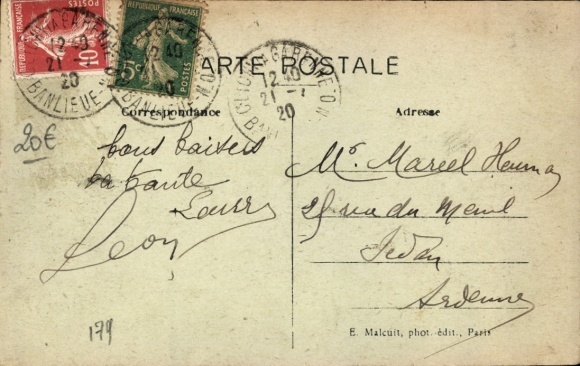 REPUBLIQUE FRANÇAISE
POSTES
10c
REPUBLIQUE FRANÇAISE
POSTES
5c
12 40
21
20
BANLIEUE
12 40
20
BANLIEUE
GARENNE
12 40
21 - 1
20
CARTE POSTALE
Correspondance
Adresse
20€
bons baisers
ta tante
Louise
Leon
Mr Marcel
25 rue du Menil
Sedan
Ardennes
E. Malcuit, phot.-édit., Paris
179